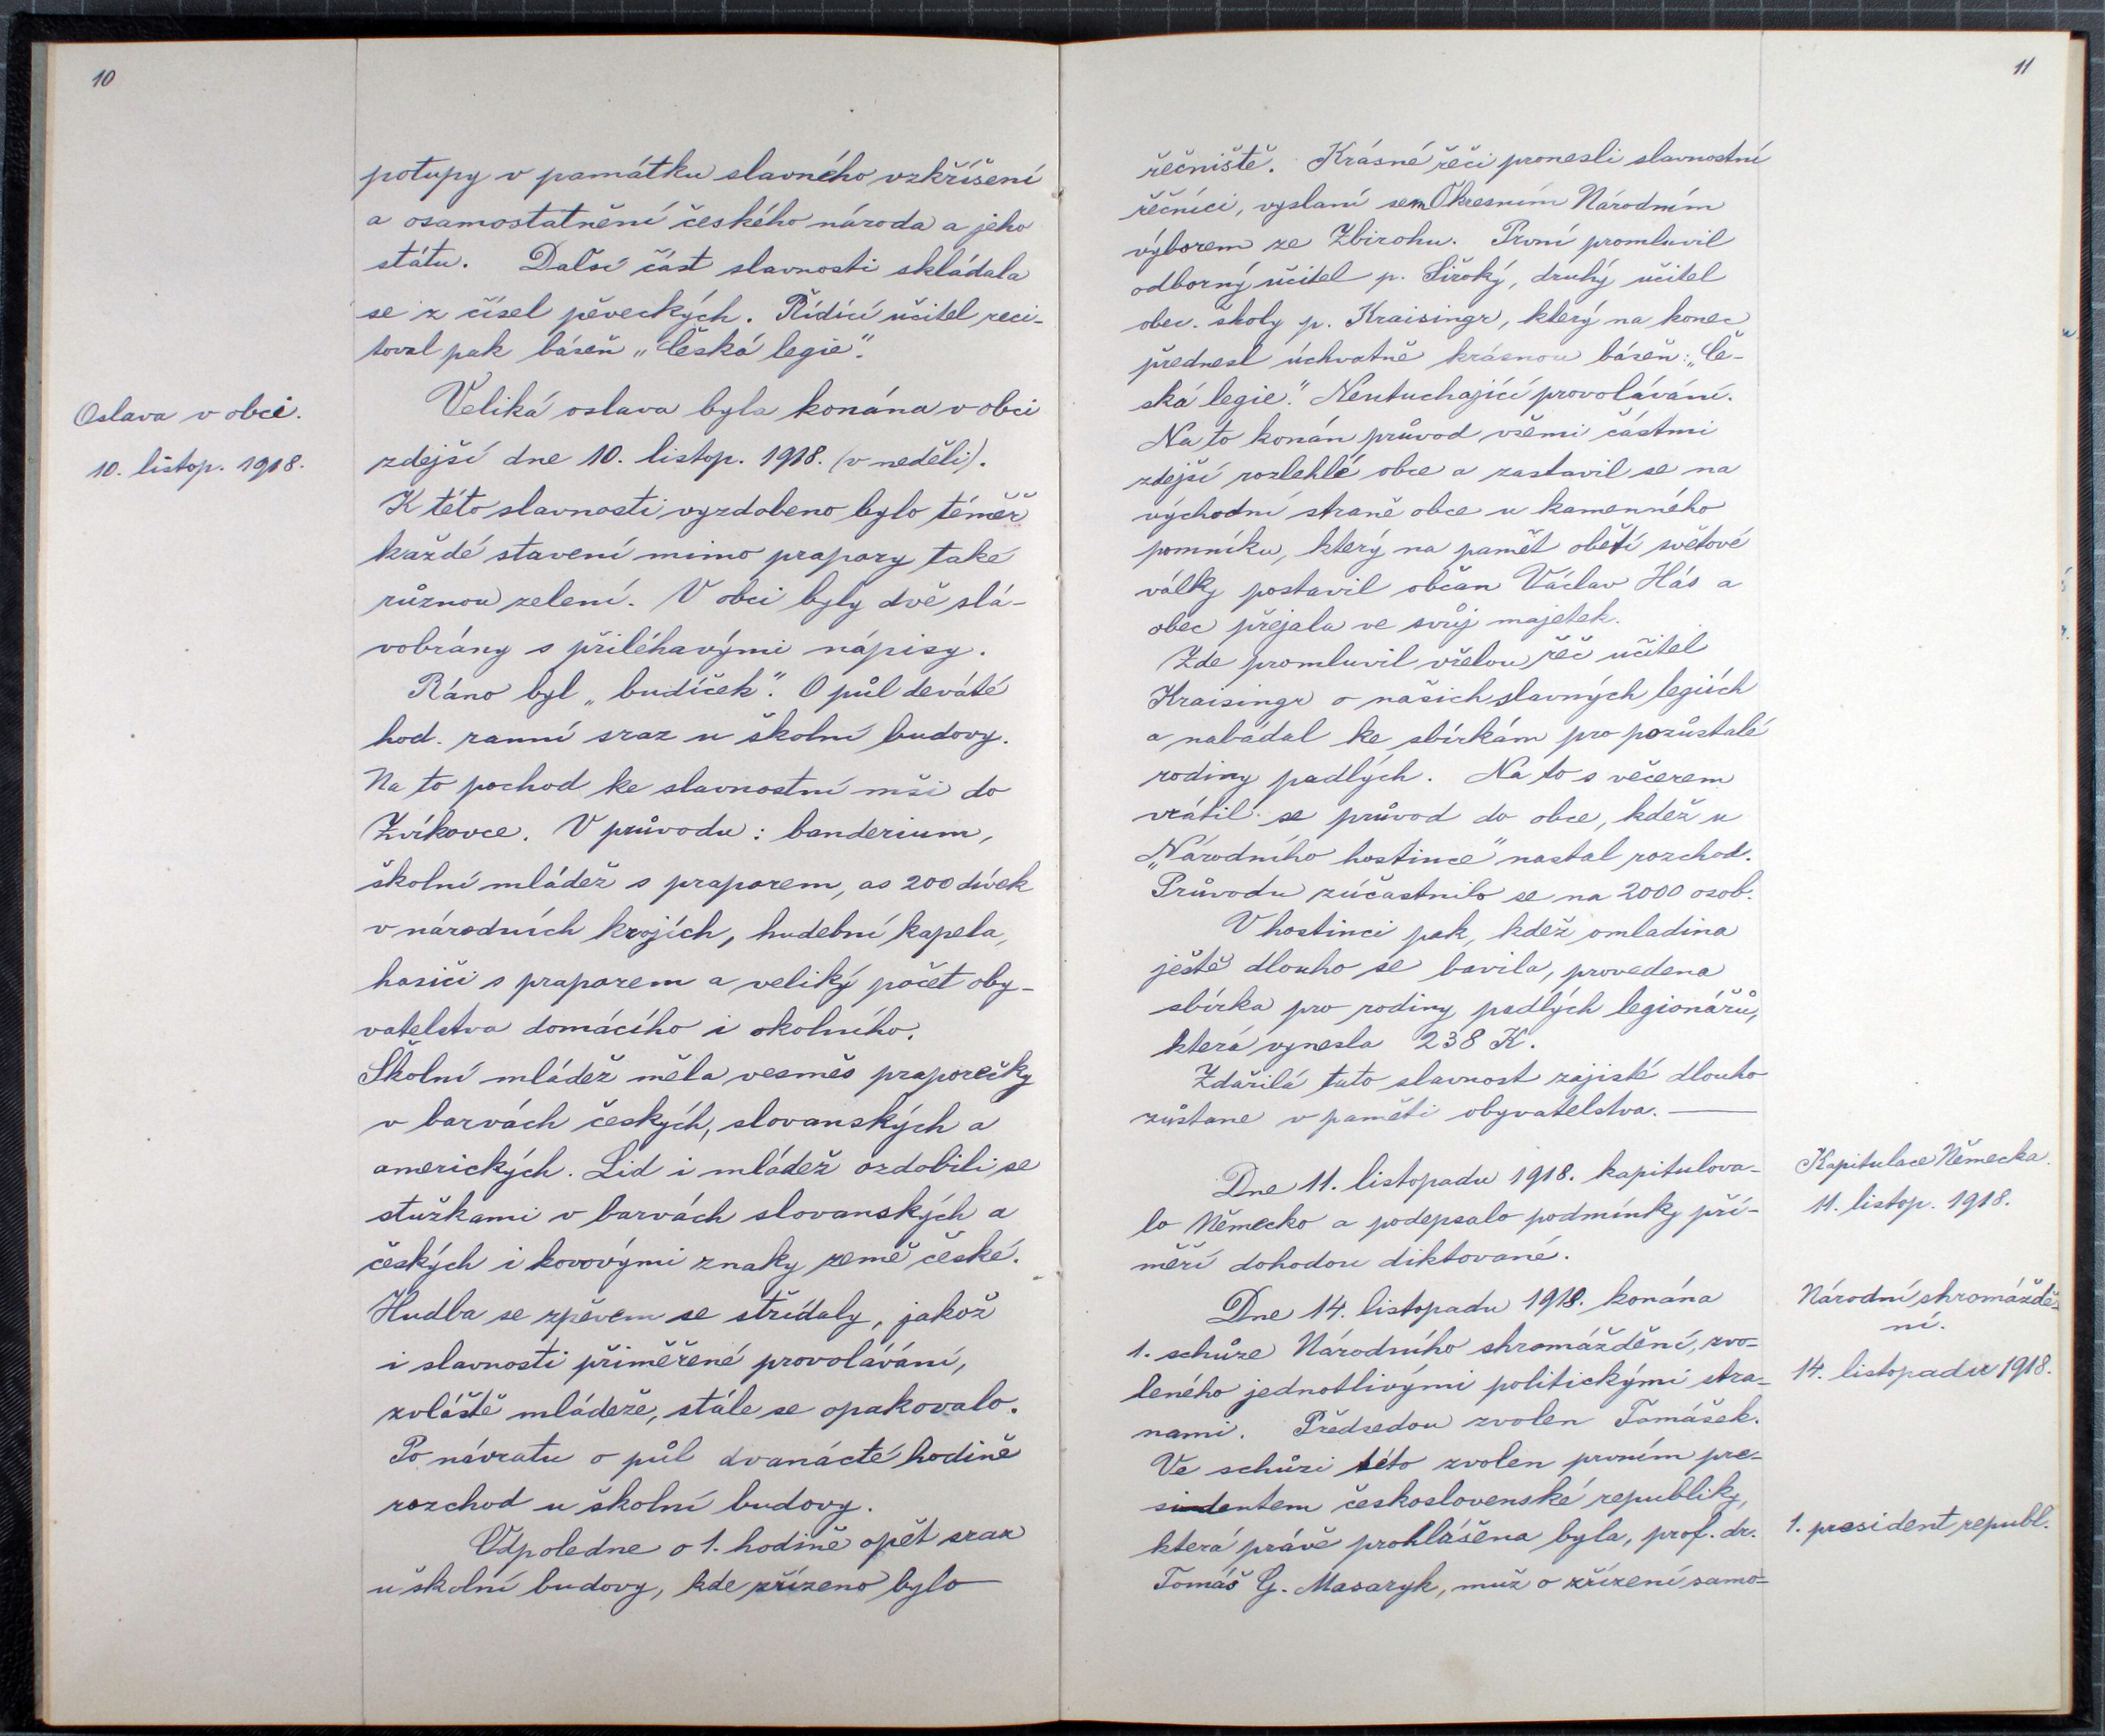 10
potupy v památku slavného vzkříšení
a osamostatnění českého národa a jeho
státu. Další část slavnosti skládala
se z čísel pěveckých. Řídící učitel reci-
toval pak báseň „Česká legie".
Oslava v obci.
10. listop. 1918.
Veliká oslava byla konána v obci
zdejší dne 10. listop. 1918. (v neděli).
K této slavnosti vyzdobeno bylo téměř
každé stavení mimo prapory také
různou zelení. V obci byly dvě slá-
vobrány s přiléhavými nápisy.
Ráno byl „budíček". O půl deváté
hod. ranní sraz u školní budovy.
Na to pochod ke slavnostní mši do
Zvíkovce. V průvodu: banderium,
školní mládež s praporem, as 200 dívek
v národních krojích, hudební kapela,
hasiči s praporem a veliký počet oby-
vatelstva domácího i okolního.
Školní mládež měla vesměs praporečky
v barvách českých, slovanských a
amerických. Lid i mládež ozdobili se
stužkami v barvách slovanských a
českých i kovovými znaky země české.
Hudba se zpěvem se střídaly, jakož
i slavnosti přiměřené provolávání,
zvláště mládeže, stále se opakovalo.
Po návratu o půl dvanácté hodině
rozchod u školní budovy.
Odpoledne o 1. hodině opět sraz
u školní budovy, kde zřízeno bylo
11
řečniště. Krásné řeči pronesli slavnostní
řečníci, vyslaní sem Okresním Národním
výborem ze Zbirohu. První promluvil
odborný učitel p. Široký, druhý učitel
obec. školy p. Kraisingr, který na konec
přednesl úchvatně krásnou báseň: „Če-
ská legie". Neutuchající provolávání.
Na to konán průvod všemi částmi
zdejší rozlehlé obce a zastavil se na
východní straně obce u kamenného
pomníku, který na paměť obětí světové
války postavil občan Václav Hás a
obec přejala ve svůj majetek.
Zde promluvil vřelou řeč učitel
Kraisingr o našich slavných legiích
a nabádal ke sbírkám pro pozůstalé
rodiny padlých. Na to s večerem
vrátil se průvod do obce, kdež u
„Národního hostince" nastal rozchod.
Průvodu zúčastnilo se na 2000 osob.
V hostinci pak, kdež omladina
ještě dlouho se bavila, provedena
sbírka pro rodiny padlých legionářů,
která vynesla 238 K.
Zdařilá tato slavnost zajisté dlouho
zůstane v paměti obyvatelstva. —
Dne 11. listopadu 1918. kapitulova-
lo Německo a podepsalo podmínky pří-
měří dohodou diktované.
Kapitulace Německa.
11. listop. 1918.
Dne 14. listopadu 1918. konána
1. schůze Národního shromáždění, zvo-
leného jednotlivými politickými stra-
nami. Předsedou zvolen Tomášek.
Ve schůzi této zvolen prvním pre-
sidentem československé republiky,
která právě prohlášena byla, prof. dr.
Tomáš G. Masaryk, muž o zřízení samo-
Národní shromáždě-
ní.
14. listopadu 1918.
1. president republ.